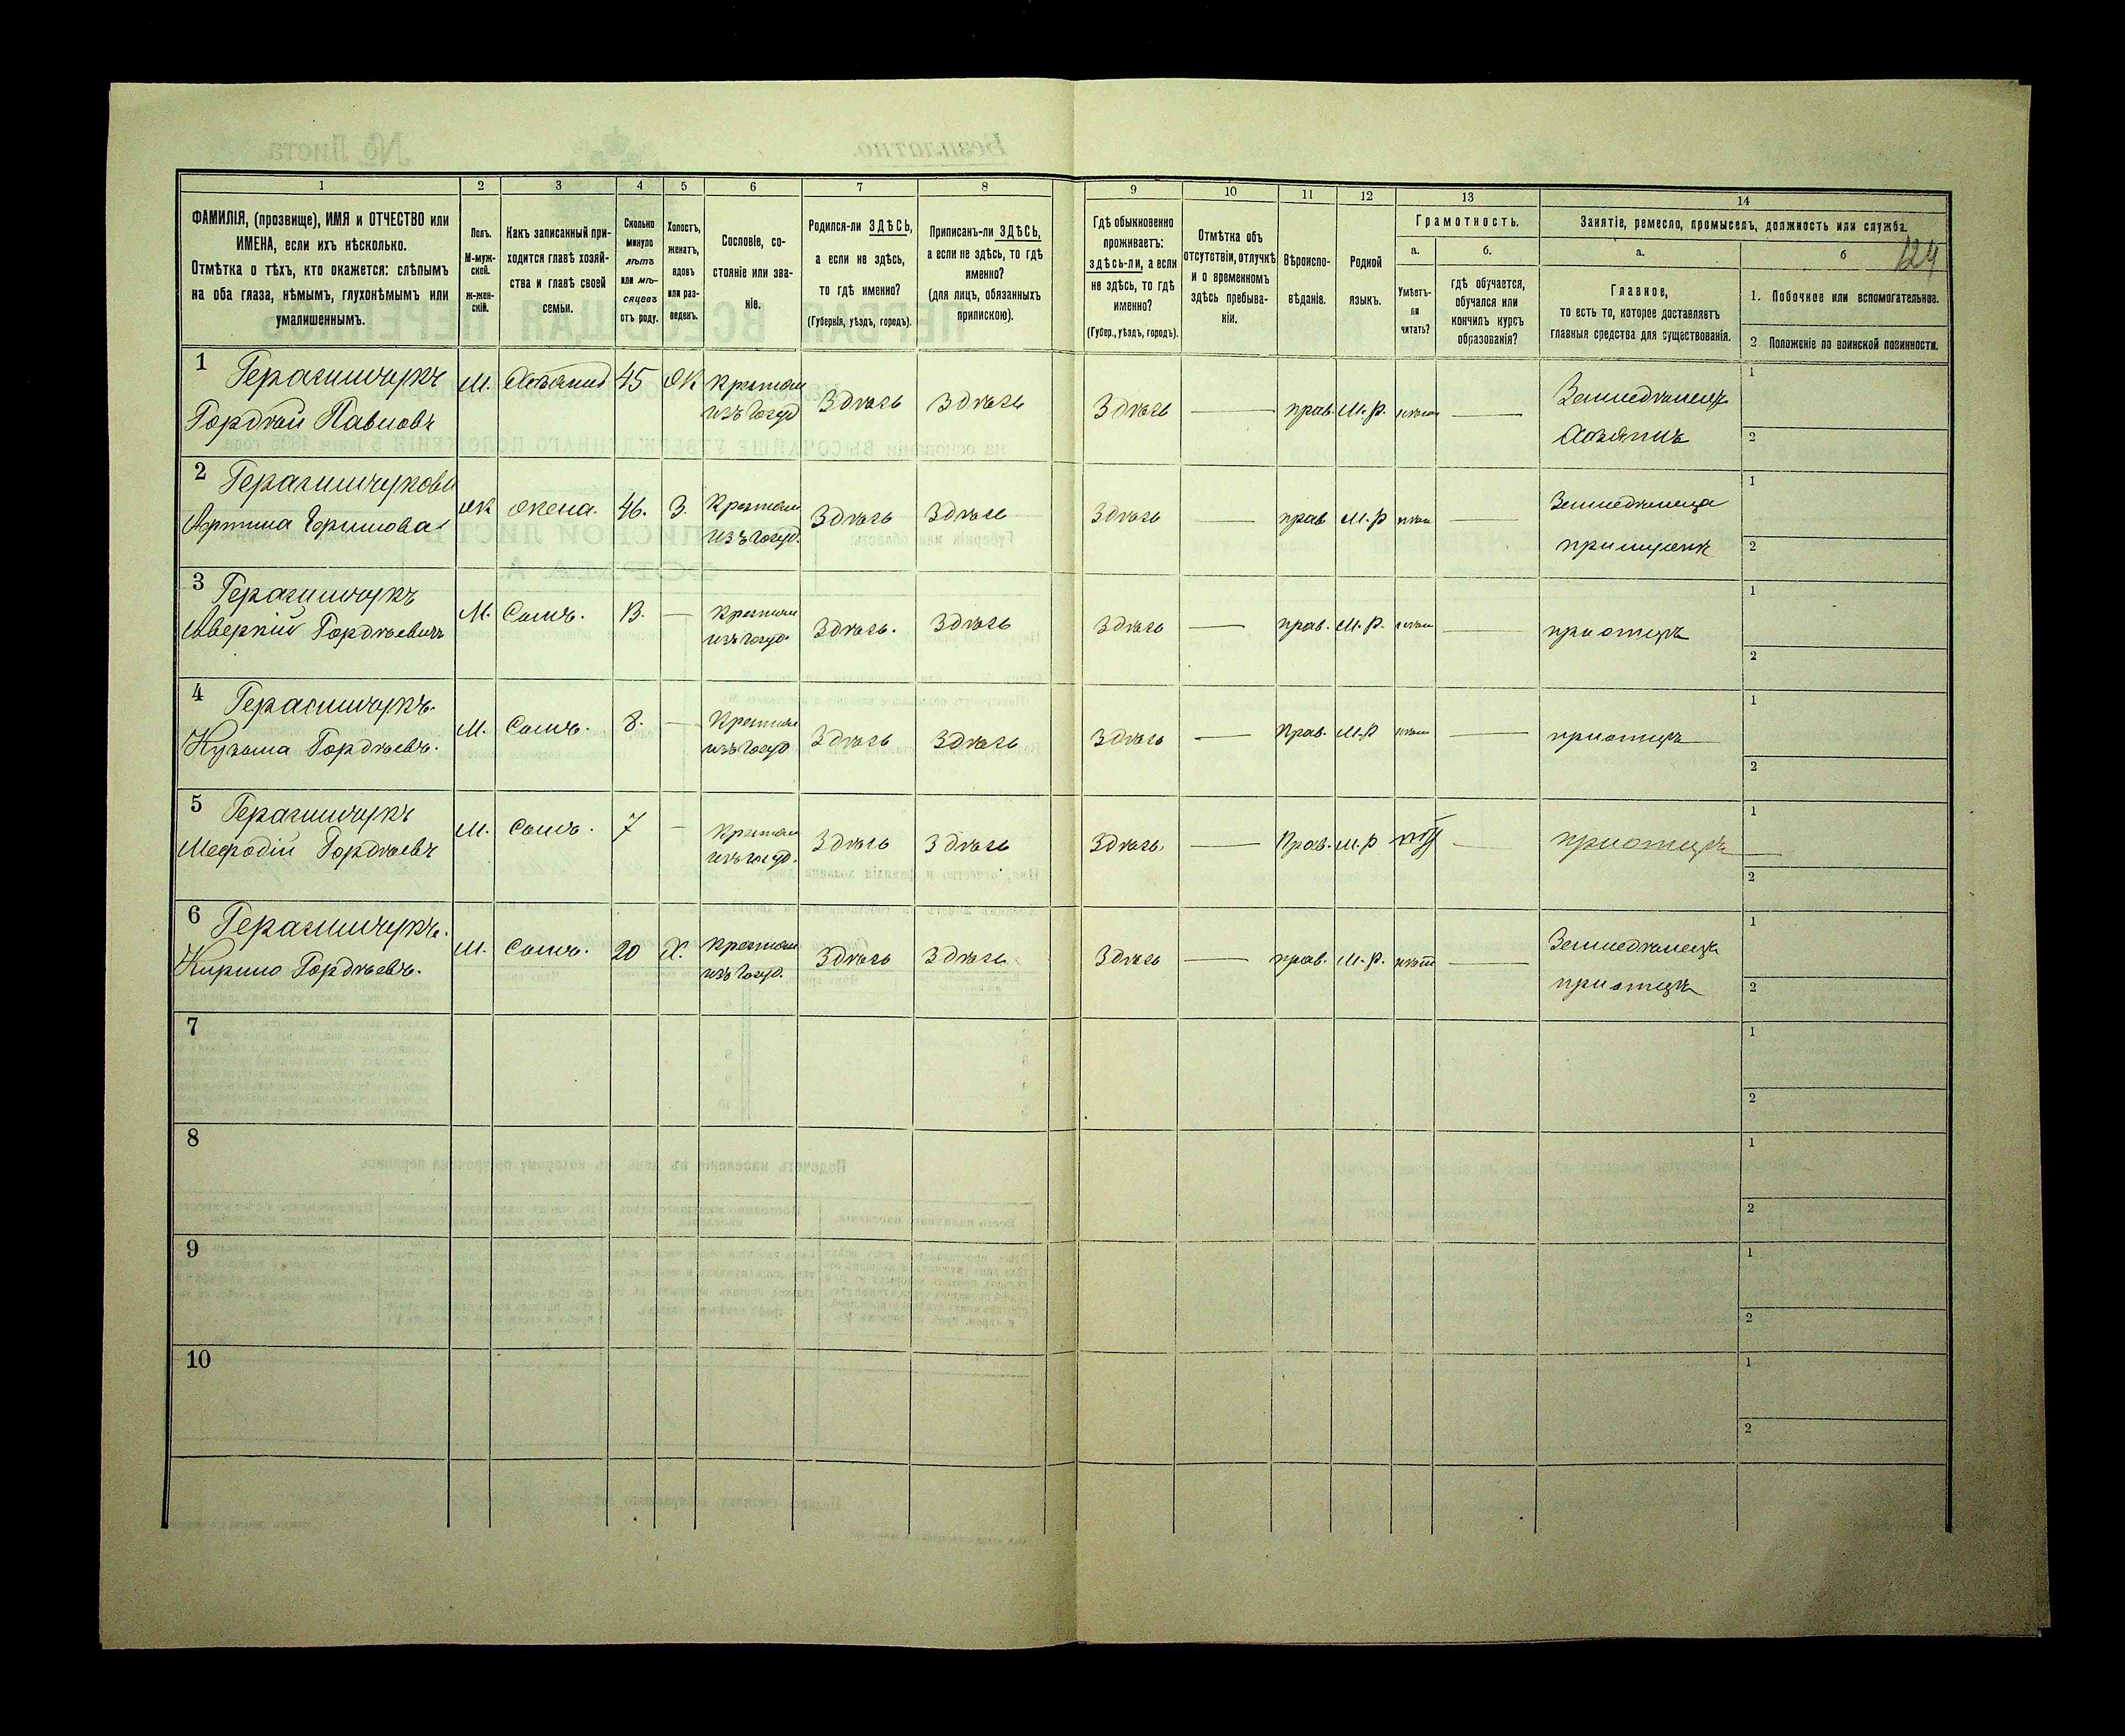 1 2 3 4 5 6 7 8 9 10 11 12 13 14
ФАМИЛІЯ, (прозвище), ИМЯ и ОТЧЕСТВО или
ИМЕНА, если ихъ нѣсколько.
Отмѣтка о тѣхъ, кто окажется: слѣпымъ
на оба глаза, нѣмымъ, глухонѣмымъ или
умалишеннымъ.
Полъ.
М-муж-
ской.
ж-жен-
скій.
Какъ записанный при-
ходится главѣ хозяй-
ства и главѣ своей
семьи.
Сколько
минуло
лѣтъ
или мѣ-
сяцевъ
отъ роду.
Холостъ,
женатъ,
вдовъ
или раз-
веденъ.
Сословіе, со-
стояніе или зва-
ніе.
Родился-ли ЗДѢСЬ,
а если не здѣсь,
то гдѣ именно?
(Губернія, уѣздъ, городъ).
Приписанъ-ли ЗДѢСЬ,
а если не здѣсь, то гдѣ
именно?
(для лицъ, обязанныхъ
припискою).
Гдѣ обыкновенно
проживаетъ:
здѣсь-ли, а если
не здѣсь, то гдѣ
именно?
(Губер., уѣздъ, городъ).
Отмѣтка объ
отсутствіи, отлучкѣ
и о временномъ
здѣсь пребыва-
ніи.
Вѣроиспо-
вѣданіе.
Родной
языкъ.
Грамотность.
а.
Умѣетъ-
ли
читать?
б.
гдѣ обучается,
обучался или
кончилъ курсъ
образованія?
Занятіе, ремесло, промыселъ, должность или служба.
124
а.
Главное,
то есть то, которое доставляетъ
главныя средства для существованія.
б
1. Побочное или вспомогательное.
2. Положеніе по воинской повинности.
1 Герасимчукъ М. Хозяинъ 45 Ж Крестьян
Гордѣй Павловъ изъ госуд Здѣсь Здѣсь Здѣсь — прав. М. р. нѣтъ — Земледѣлецъ
Хозяинъ
1
2
2 Герасимчукова Ж жена. 46. З. Крестьян
изъ госуд. Здѣсь Здѣсь Здѣсь — прав М. р нѣтъ — Земледѣлица
1
2
3 Герасимчукъ
Аверкій Гордѣевичъ М. Сынъ. 13. — Крестьян
изъ госуд. Здѣсь. Здѣсь Здѣсь — прав. М. р. нѣтъ — при отцѣ
1
2
4 Герасимчукъ.
Кузьма Гордѣевъ. М. Сынъ. 8. — Крестьян
изъ госуд Здѣсь Здѣсь Здѣсь — Прав. М. р нѣтъ — при отцѣ
1
2
5 Герасимчукъ
Мефодій Гордѣевъ М. Сынъ. 7 — Крестьян
изъ госуд. Здѣсь Здѣсь Здѣсь. — Прав. М. р — при отцѣ
1
2
6 Герасимчукъ.
Кирило Гордѣевъ. М. Сынъ. 20 Х. Крестьян
изъ госуд. Здѣсь Здѣсь Здѣсь — прав. М. р. нѣтъ — Земледѣлецъ
при отцѣ
1
2
7
1
2
8
1
2
9
1
2
10
1
2